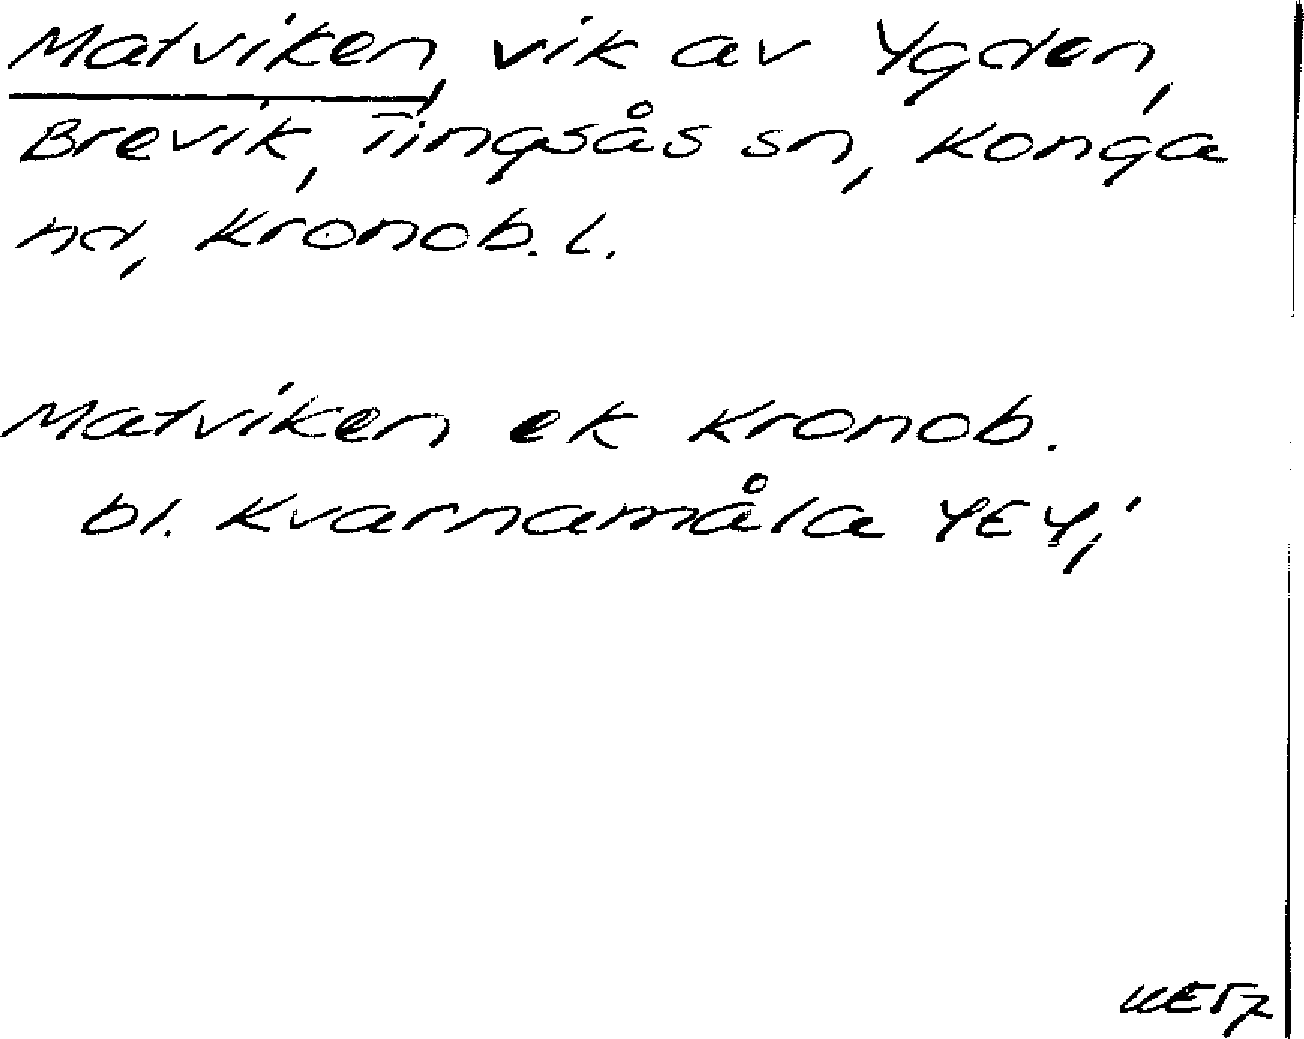 Matviken, vik av Ygden,
Brevik, Tingsås sn, Konga
hd, Kronob. l.
Matviken ek Kronob.
bl. Kvarnamåla